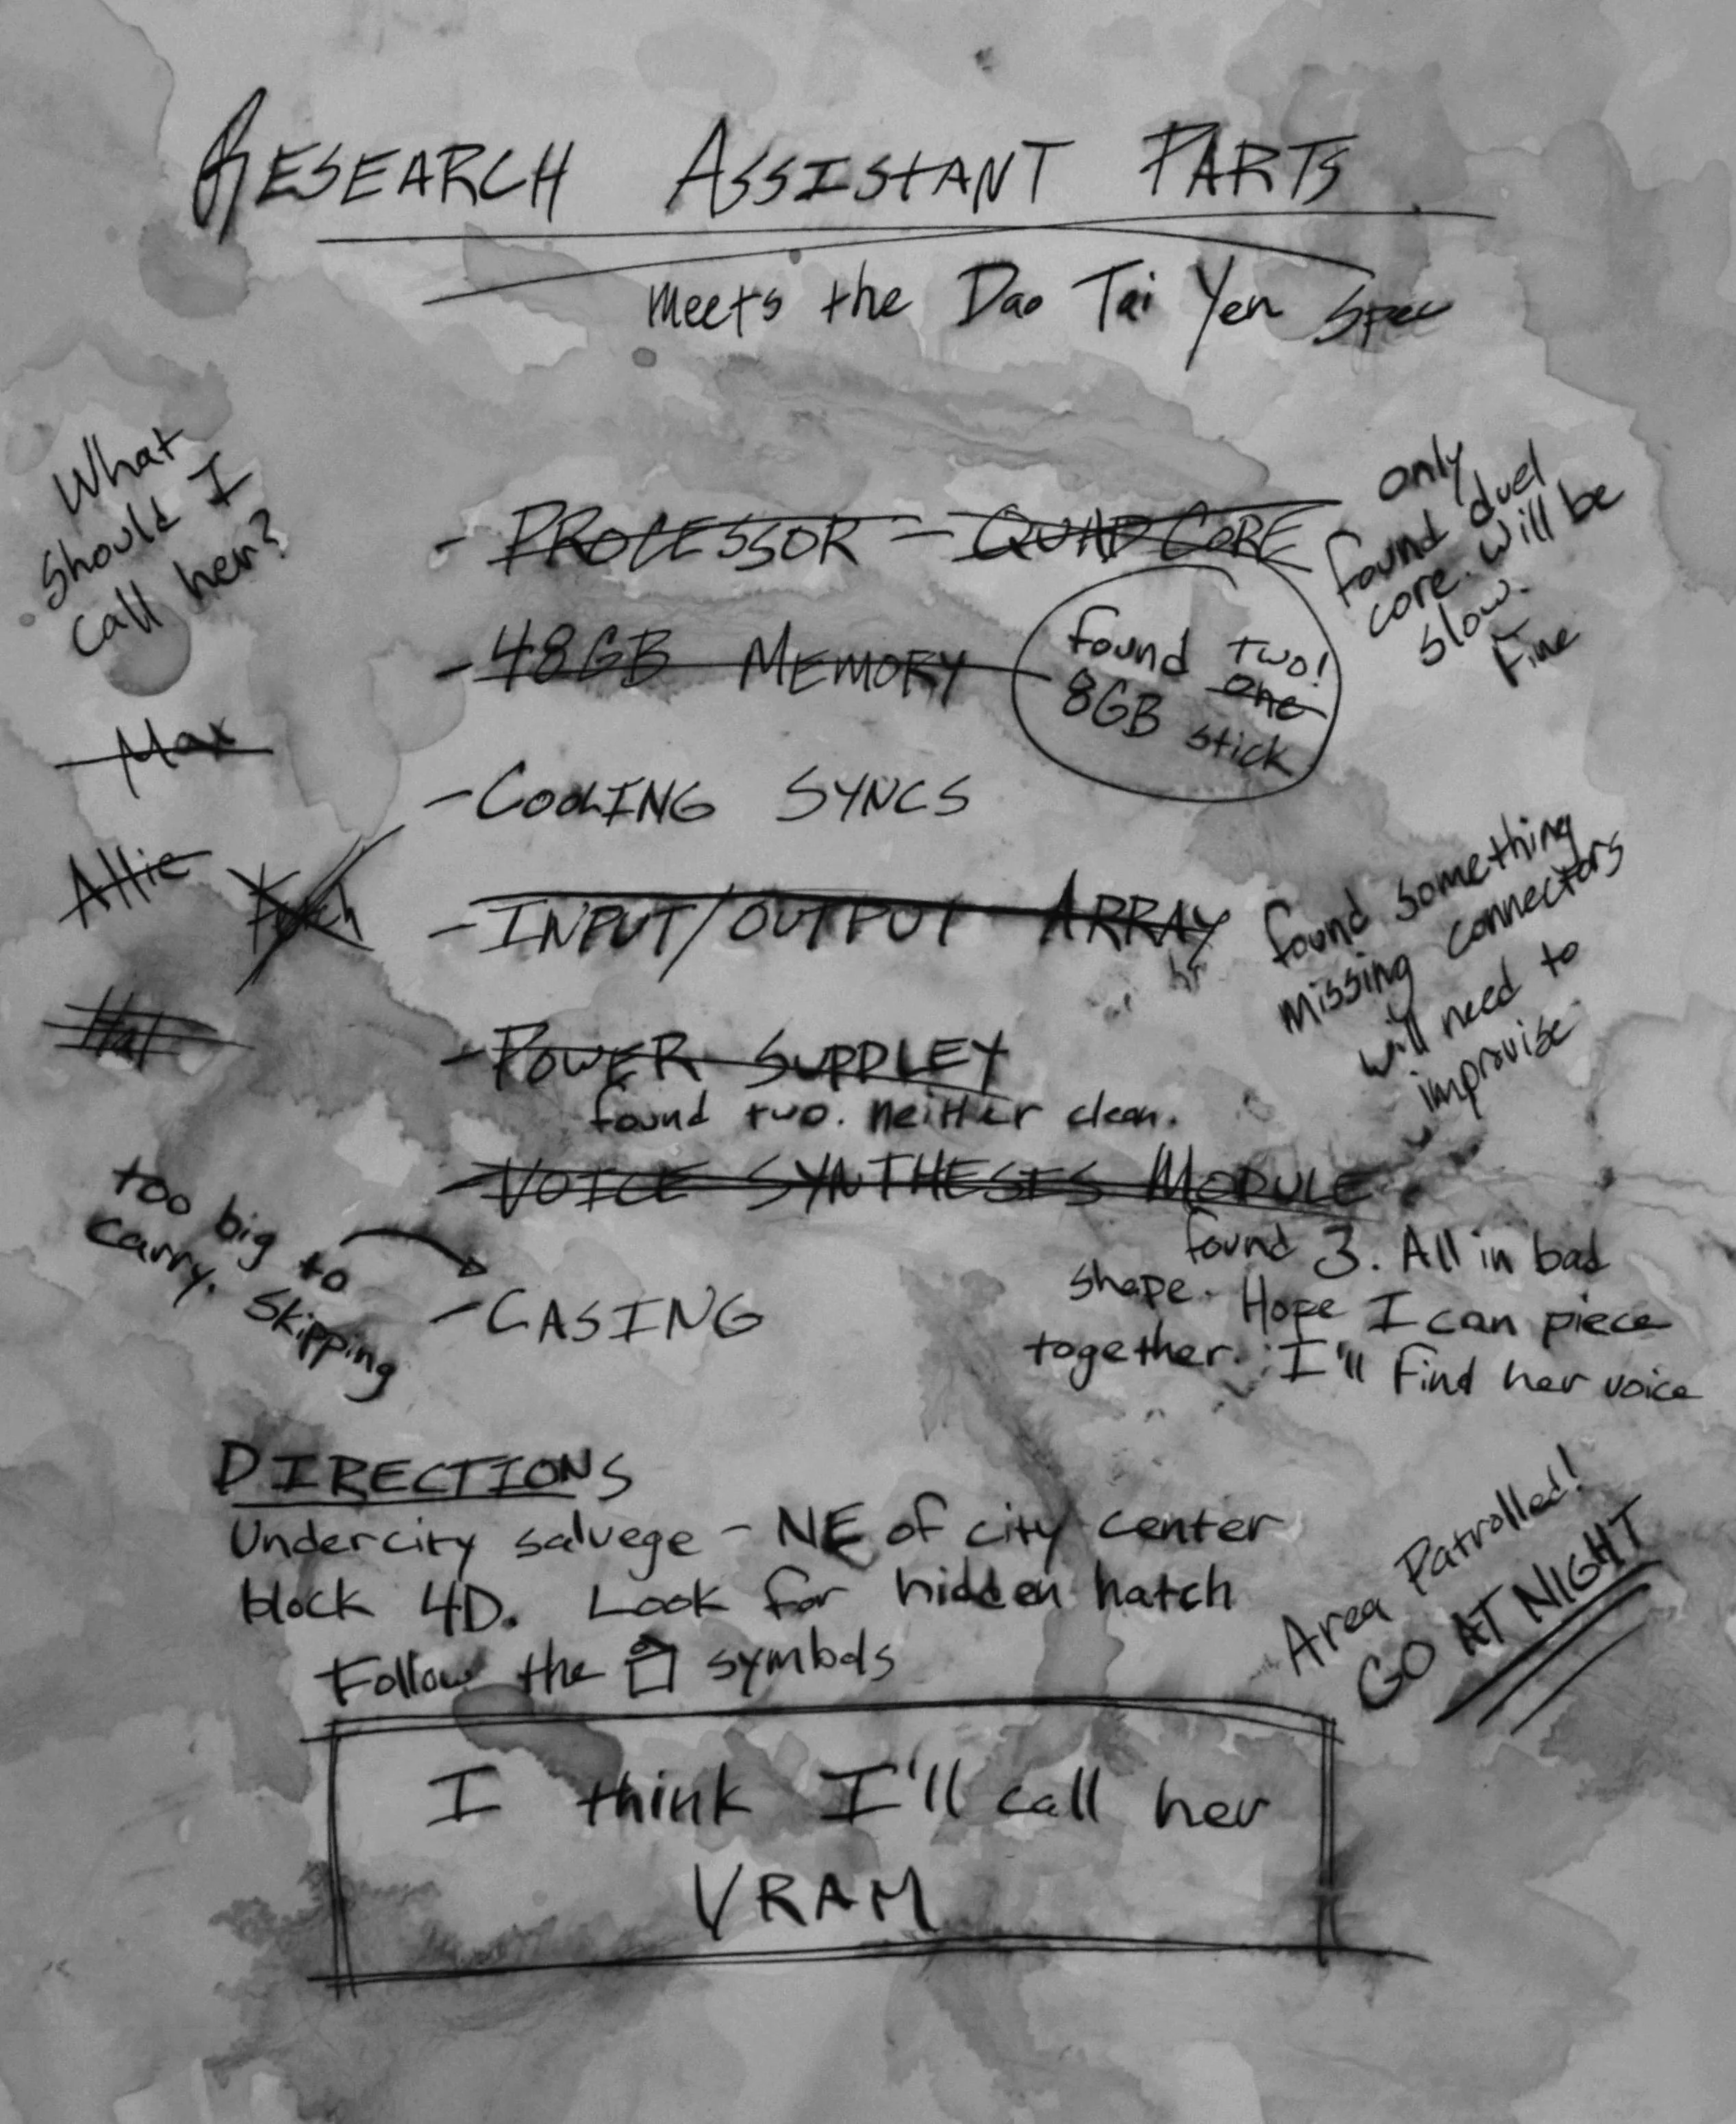 RESEARCH ASSISTANT PARTS
Meets the Dao Tai Yen spec
What
should I
call her?
Max
Allie
Hal
- PROCESSOR - QUAD CORE
only
found duel
core. will be
slow.
Fine
- 48GB MEMORY
found two!
one
8GB stick
- COOLING SYNCS
- INPUT/OUTPUT ARRAY
found something
missing connectors
will need to
improvise
- POWER SUPPLEY
found two. neither clean.
- VOICE SYNTHESES MODULE
found 3. All in bad
shape. Hope I can piece
together. I'll find her voice
too big to
carry. Skipping
- CASING
DIRECTIONS
Undercity salvege - NE of city center
block 4D. Look for hidden hatch
Follow the symbols
Area Patrolled!
GO AT NIGHT
I think I'll call her
VRAM